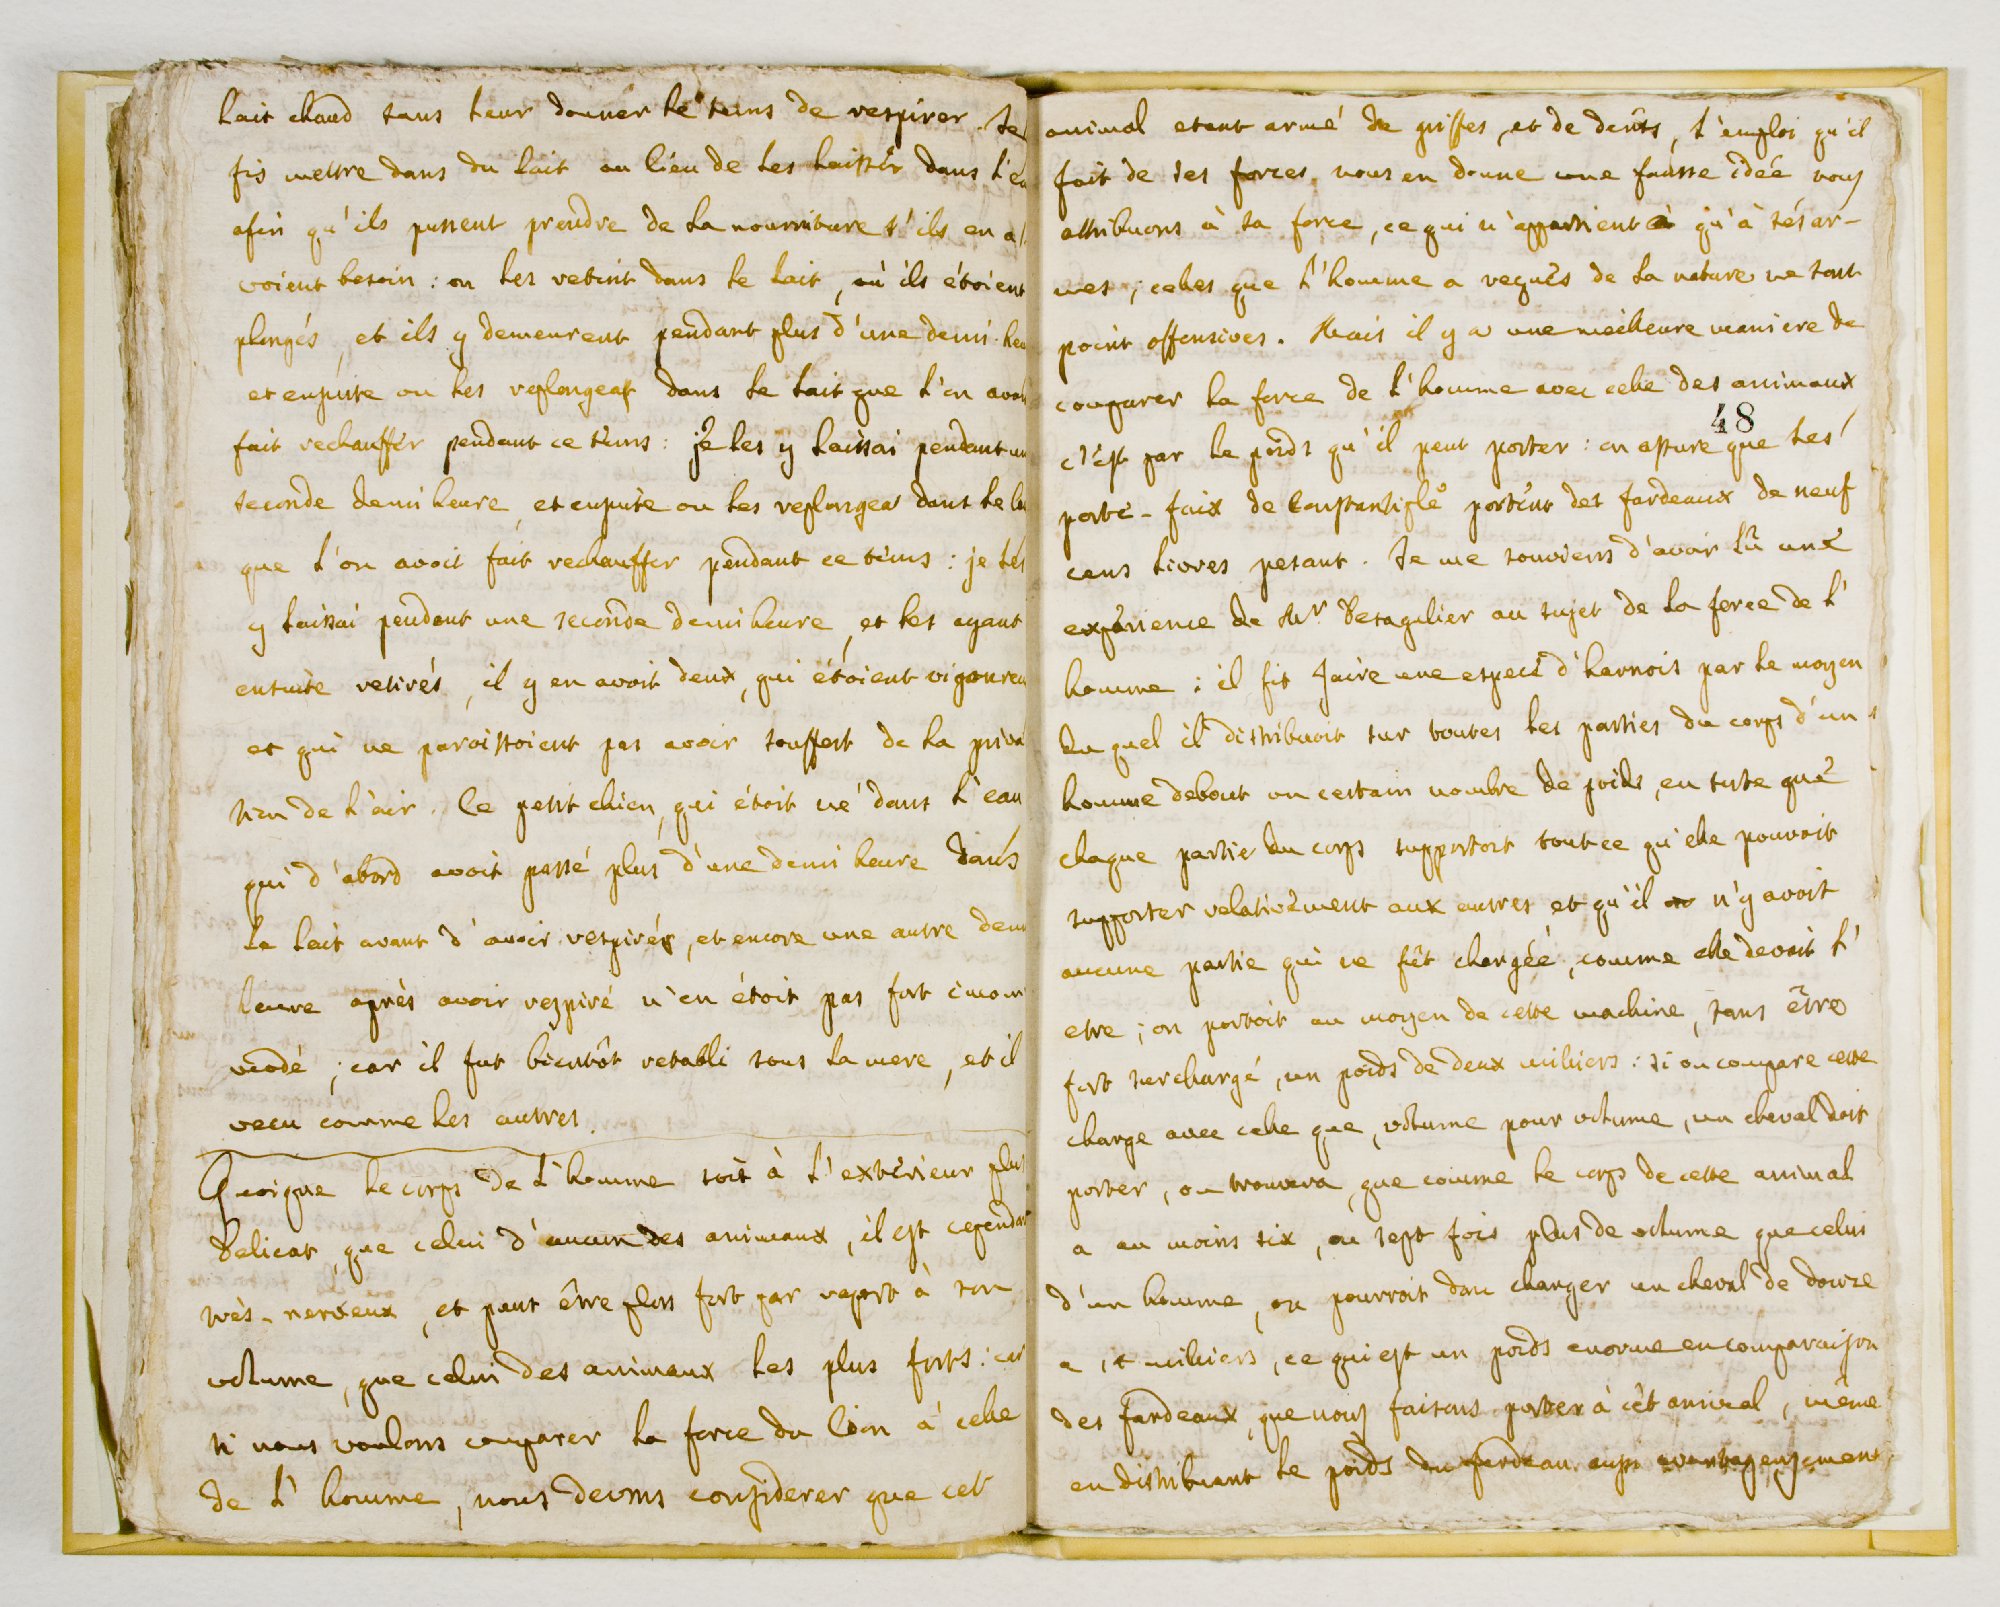 lait chaud sans leur donner le tems de respirer. Je
fis mettre dans du lait au lieu de les laisser dans l'eau
afin qu'ils pussent prendre de la nourriture s'ils en a-
voient besoin : on les retint dans le lait, où ils étoient
plongés, et ils y demeurent pendant plus d'une demi heu
et ensuite on les replongeat dans le lait que l'on avoit
fait rechauffer pendant ce tems : je les y laissai pendant un
seconde demi heure, et ensuite on les replongea dans le la
que l'on avoit fait rechauffer pendant ce tems : je les
y laissai pendant une seconde demi heure, et les ayant
ensuite retirés, il y en avoit deux, qui étoient vigoureu
et qui ne paroissoient pas avoir souffert de la priva
tion de l'air. Ce petit chien, qui étoit né dans l'eau
qui d'abord avoit passé plus d'une demi heure dans
le lait avant d'avoir respirér, et encore une autre demi
heure après avoir respiré n'en étoit pas fort incom
modé ; car il fut bientôt retabli sous la mere, et il
vecu comme les autres.
Quoique le corps de l'homme soit à l'extérieur plus
delicat, que celui d'aucun des animaux, il est cependant
très-nerveux, et peut être plus fort par raport à son
volume, que celui des animaux les plus forts : car
si nous voulons comparer la force du lion à celle
de l'homme, nous devons considerer que cet
animal etent armé de griffes, et de dents, l'emploi qu'il
fait de ses forces, nous en donne une fausse idée nous
attribuons à sa force, ce qui n'appartient à qu'à sés ar-
mes ; celles que l'homme a reçuës de la nature ne sont
point offensives. Mais il y a une meilleure maniere de
comparer la force de l'homme avec celle des animaux
48
c'est par le poids qu'il peut porter : on assure que les
porte-faix de Constantiple portent des fardeaux de neuf
cens livres pesant. Je me souviens d'avoir lû une
expérience de Mr. Desagulier au sujet de la force de l'
homme : il fit faire une espece d'harnois par le moyen
du quel il distribuoit sur toutes les parties du corps d'un
homme debout un certain nombre de poids, en sorte que
chaque partie du corps supportoit tout ce qu'elle pouvoit
supporter relativement aux autres et qu'il n'y avoit
aucune partie qui ne fût chargée, comme elle devoit l'
etre ; on portoit au moyen de cette machine, sans être
fort surchargé, un poids de deux milliers : si on compare cette
charge avec celle que, volume pour volume, un cheval doit
porter, on trouvera, que comme le corps de cette animal
a au moins six, ou sept fois plus de volume que celui
d'un homme, on pourroit donc charger un cheval de douze
a milliers, ce qui est un poids enorme en comparaison
des fardeaux, que nous faisons porter à cêt animal, même
en distribuant le poids du fardeau aussi avantageusement